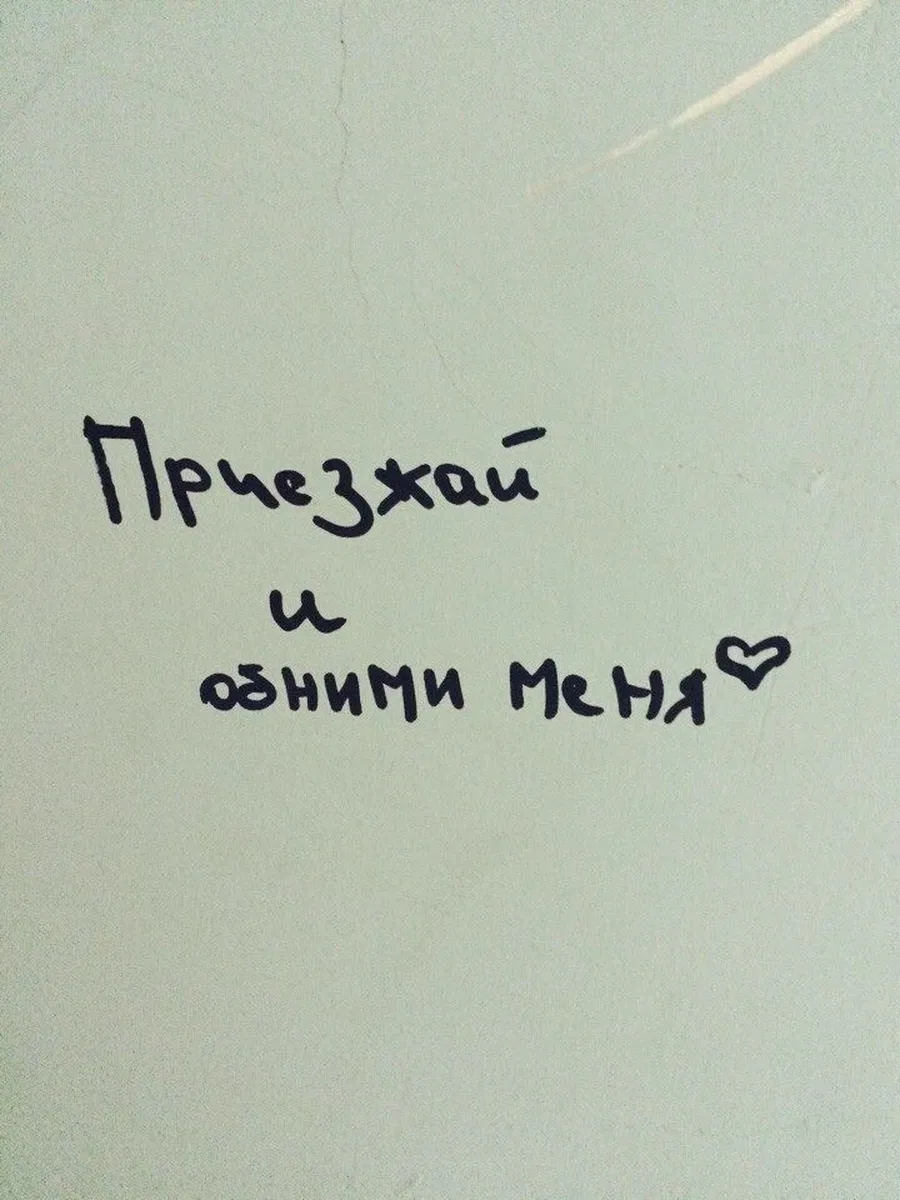 Приезжай
и
обними меня♡